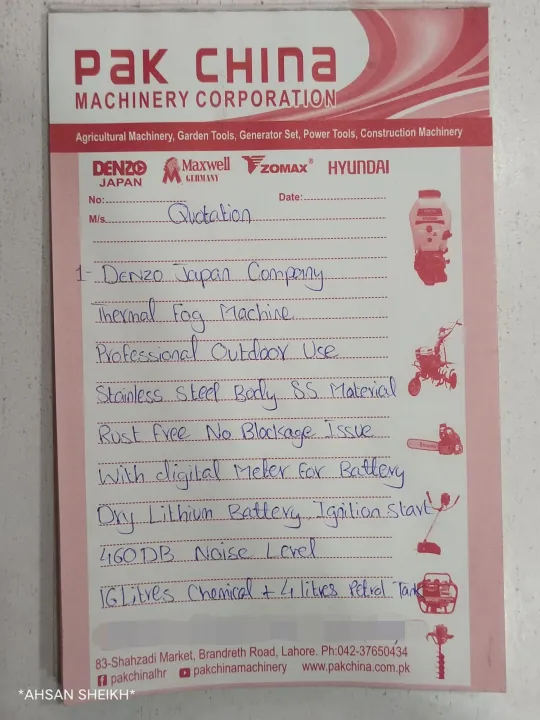 PAK CHINA
MACHINERY CORPORATION
Agricultural Machinery, Garden Tools, Generator Set, Power Tools, Construction Machinery
DENZO JAPAN Maxwell GERMANY ZOMAX® HYUNDAI
No: Date:
M/s. Quotation
1- DENZO Japan Company
Thermal Fog Machine
Professional Outdoor Use
Stainless Steel Body SS Material
Rust Free No Blockage Issue
With digital Meter For Battery
Dry Lithium Battery Ignition Start
460 DB Noise Level
16 Litres Chemical + 4 litres Petrol Tank
83-Shahzadi Market, Brandreth Road, Lahore. Ph:042-37650434
pakchinalhr pakchinamachinery www.pakchina.com.pk
*AHSAN SHEIKH*